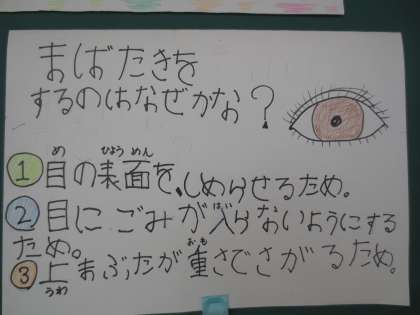 まばたきを
するのはなぜかな?
め ひょう めん
①目の表面を、しめらせるため。
はい
②目にごみが入らないようにする
ため。
おも
③上まぶたが重さでさがるため。
うわ